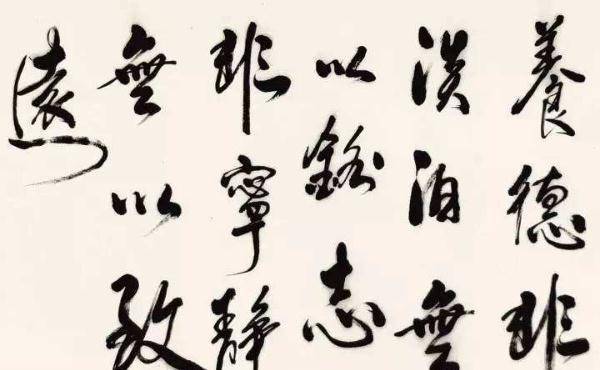 養德非
淡泊無
以銘志
非寧靜
無以致
遠